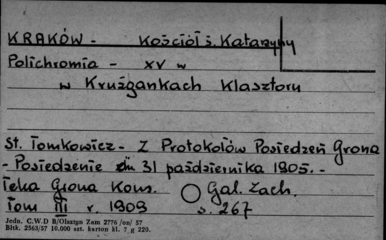 KRAKÓW - Kościół ś. Katarzyny
Polichromia - XV w
w Krużgankach Klasztoru
St. Tomkowicz - Z Protokołów Posiedzeń Grona
- Posiedzenie dn 31 października 1905. -
Teka Grona Kons. Gal. Zach.
Tom III r. 1909 s. 267
Jedn. C.W.D R/Olsztyn Zam 2776 /on/ 57
Bltk. 2563/57 10.000 szt. karton kl. 7 g 220.